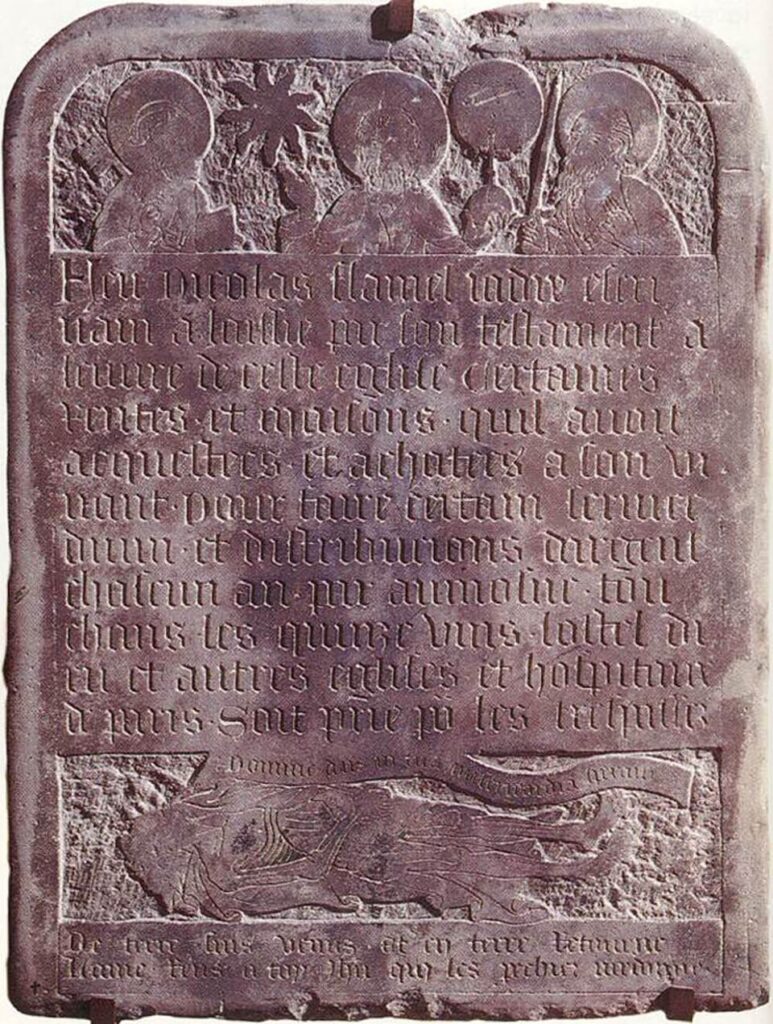 Feu nicolas flamel iadis escri
uain a laissie par son testament a
leuure de ceste eglise certaines
rentes et maisons quil auoit
acquestees et achatees a son vi
uant pour faire certain seruice
diuin et distribucions dargent
chascun an par aumosne tou
chans les quinze vins lostel di
eu et autres eglises et hospitaux
de paris Soit prie po les trespassez
Domine deus in tua misericordia speraui
De terre suis venus et en terre Retourne
Lame Rens a toy Ihu qui les pechiez pardonne